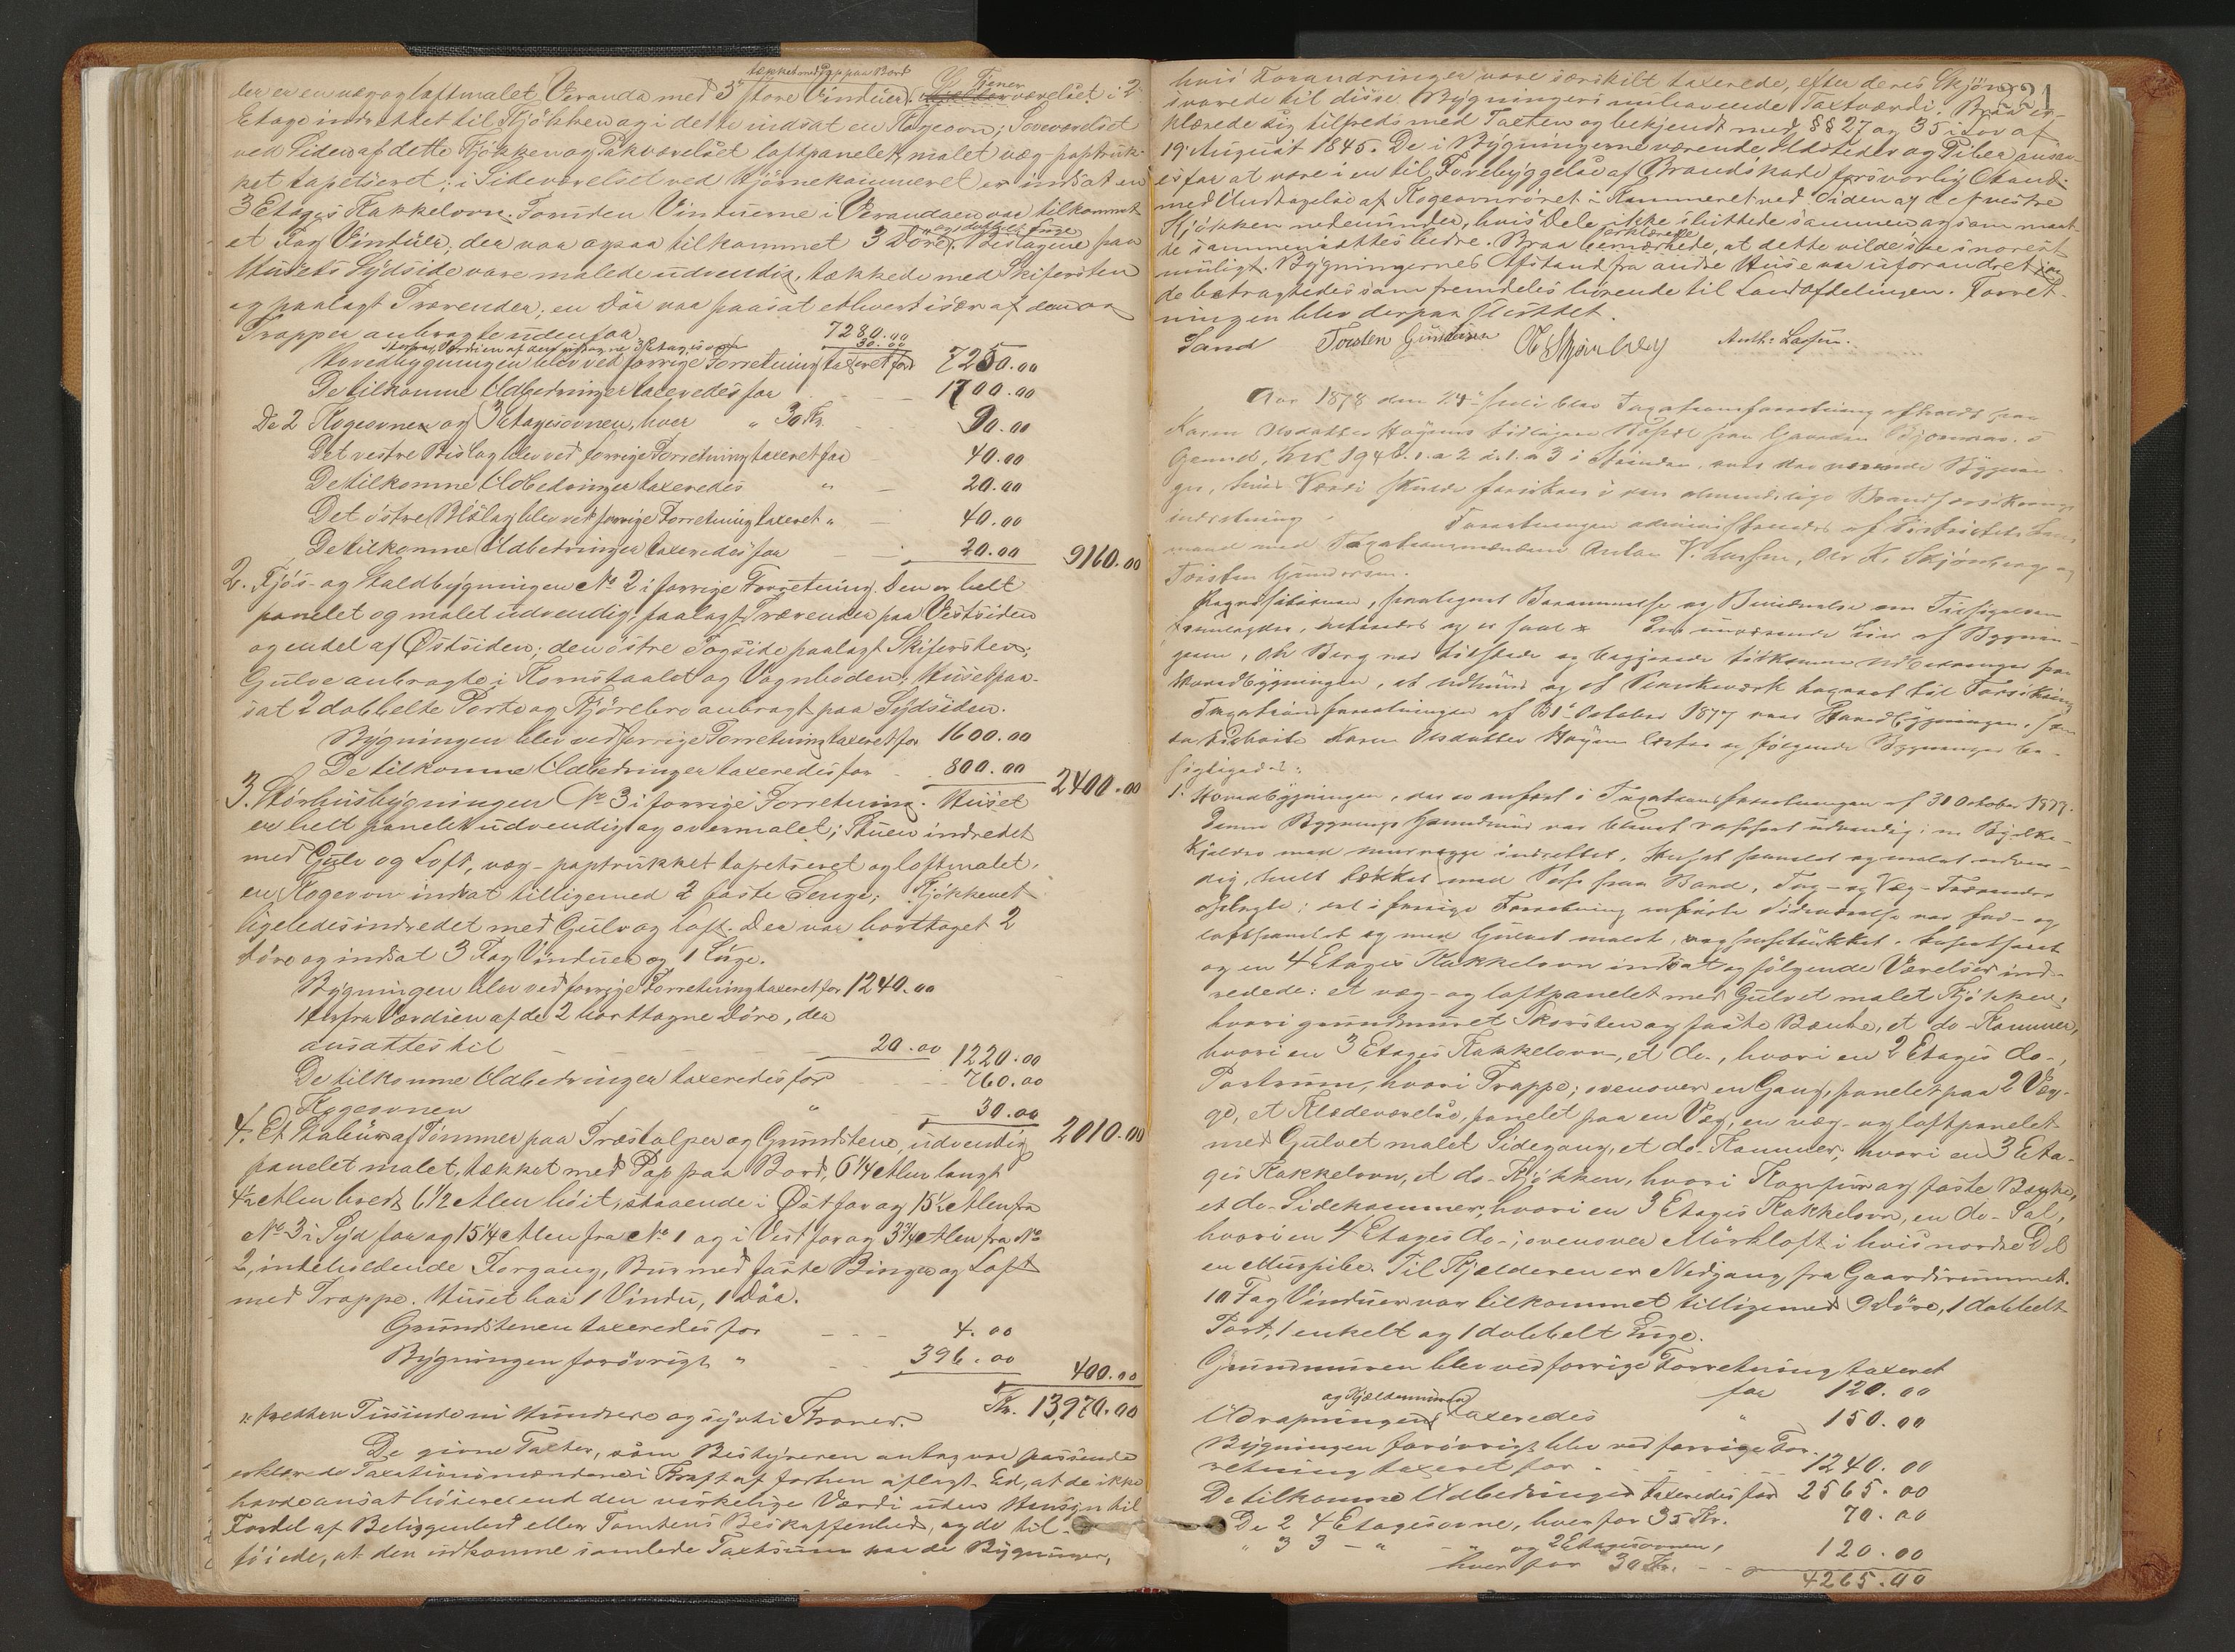 tækket med Pap paa Bord
der er en væg og loftmalet Veranda med 3 store Vinduer. Tienerværelset i 2
Etage indrettet til Kjøkken og i dette indsat en Kogeovn; Soveværelset
ved Siden af dette Kjøkken og Takværelset loftpanelet, malet væg paptruk-
ket tapetseret; i Sideværelset ved Hjørnekammeret er indsat en
3 Etages Kakkelovn. Foruden Vinduerne i Verandaen var tilkommet
et Fag Vinduer; der var ogsaa tilkommet 3 Døre og dobbelt Luge. Bislagene paa
Husets Sydside vare malede udvendig, tækkede med Skifersten
og paalagt Trærender; en Dør var paasat ethvert især af dem og
Trapper anbragte udenfor.
7280.00
30.00
Hovedbygningen blev ved forrige Forretning taxeret for 7250.00
De tilkomne Udbedringer taxeredes for 1700.00
De 2 Kogeovne og 3 Etagesovnen, hver " 30 Kr. 90.00
Det vestre Bislag blev ved forrige Forretning taxeret for 40.00
De tilkomne Udbedringer taxeredes " 20.00
Det østre Bislag blev ved forrige Forretning taxeret " 40.00
De tilkomne Udbedringer taxeredes for 20.00 9160.00
2. Fjøs- og Staldbygningen No 2 i forrige Forretning. Den er helt
panelet og malet udvendig, paalagt Trærender paa Vestsiden
og endel af Østsiden; den østre Tagside paalagt Skifersten;
Gulve anbragte i Kornstaalet og Vognboden; Huset paa-
sat 2 dobbelte Porte og Kjørebro anbragt paa Sydsiden.
Bygningen blev ved forrige Forretning taxeret for 1600.00
De tilkomne Udbedringer taxeredes for 800.00 2400.00
3. Størhusbygningen No 3 i forrige Forretning. Huset
er helt panelet udvendig og overmalet; Stuen indredet
med Gulv og Loft, væg-paptrukket tapetseret og loftmalet,
en Kogeovn indsat tilligemed 2 faste Senge; Kjøkkenet
ligeledes indredet med Gulv og Loft. Der var borttaget 2
Døre og indsat 3 Fag Vinduer og 1 Luge.
Bygningen blev ved forrige Forretning taxeret for 1240.00
Herfra Værdien af de 2 borttagne Døre, der
ansattes til 20.00 1220.00
De tilkomne Udbedringer taxeredes for 760.00
Kogeovnen " 30.00 2010.00
4. Et Stabur af Tømmer paa Træstolper og Grundstene, udvendig
panelet malet, tækket med Pap paa Bord, 6 1/4 Alen langt
4 1/2 Alen bredt 6 1/2 Alen høit, staaende i Øst for og 15 1/2 Alen fra
No 3 i Syd for og 15 1/4 Alen fra No 1 og i Vest for og 3 3/4 Alen fra No
2, indeholdende Forgang, Bur med faste Binger og Loft
med Trappe. Huset har 1 Vindu, 1 Dør.
Grundstenene taxeredes for 4.00
Bygningen forøvrigt " 396.00 400.00
Kr. 13,970.00
": tretten Tusinde ni Hundrede og sytti Kroner.
De givne Taxter, som Bestyreren antog var passende
erklærede Taxationsmændene i Kraft af forhen aflagt Ed, at de ikke
havde ansat høiere end den virkelige Værdi uden Hensyn til
Fordel af Beliggenhed eller Tomtens Beskaffenhed, og de til-
føiede, at den udkomne samlede Taxtsum paa de Bygninger,
221
hvis Forandringer vare særskilt taxerede, efter deres Skjøn
svarede til disse Bygningers nuhavende Taxtværdi. Braa er-
klærede sig tilfreds med Taxten og bekjendt med §§ 27 og 35 i Lov af
19 August 1845. De i Bygningerne værende Ildsteder og Piber ansaa-
es for at være i en til Forebyggelse af Brandskade forsvarlig Stand
med Undtagelse af Kogeovnrøret i Kammeret ved Siden af det vestre
Kjøkken nedenunder, hvis Dele ikke sluttede sammen og som maat-
te sammensættes bedre. Braa erklærede, at dette vilde ske snarest
muligt. Bygningernes Afstand fra andre Huse var uforandret, og
de betragtedes som fremdeles hørende til Landafdelingen. Forret-
ningen blev derpaa sluttet.
Sand Torsten Gundersen O K Skjønberg Anth: Larsen.
Aar 1878 den 24 Juli blev Taxationsforretning afholdt paa
Karen Olsdatter Høyems tidligere Bopæl paa Gaarden
Grund, 194 i Strinden, over der værende Bygnin-
ger, hvis Værdi skulde forsikres i den almindelige Brandforsikrings
indretning. Forretningen administreredes af Districtets Lens-
mand med Taxationsmændene Anton V. Larsen, Ole K. Skjønberg og
Torsten Gundersen.
Requisitionen, forelagdes
Hovedbygningen, et Udhuus
Taxationsforretningen af 31 October 1877 over Hovedbygningen,
Karen Olsdatter Høyem læstes og følgende Bygninger be-
sigtigedes:
1. Hovedbygningen, der er anført i Taxationsforretningen af 31 October 1877.
Denne Bygnings Grundmuur var blevet rappet udvendig; en Bjelke-
kjelder med murvegge indrettet. Huset panelet og malet udven-
dig, helt tækket med Pap paa Bord, Tag- og Væg-Trærender
paalagte; det i forrige Forretning anførte Sideværelse var fad- og
loftpanelet og med Gulvet malet, vægpaptrukket, tapetseret
og en 4 Etages Kakkelovn indsat og følgende Værelser ind-
redede: et væg- og loftpanelet med Gulvet malet Kjøkken,
hvori grundmuret Skorsten og faste Bænke, et do-Kammer,
hvori en 3 Etages Kakkelovn, et do., hvori en 2 Etages do-,
Portrum, hvori Trappe; ovenover en Gang, panelet paa 2 Væg-
ge, et Klædeværelse, panelet paa en Væg; en væg- og loftpanelet
med Gulvet malet Sidegang, et do-Kammer, hvori en 3 Eta-
ges Kakkelovn, et do-Kjøkken, hvori Komfur og faste Bænke,
et do-Sidekammer, hvori en 3 Etages Kakkelovn, en do-Sal,
hvori en 4 Etages do-; ovenover Mørkloft i hvis nordre Del
en Murpibe. Til Kjelderen er Nedgang fra Gaardsrummet.
10 Fag Vinduer var tilkommet tilligemed 9 Døre, 1 dobbelt
Port, 1 enkelt og 1 dobbelt Luge.
Grundmuren blev ved forrige Forretning taxeret
for 120.00
Udrapningen og Kjeldermuren taxeredes " 150.00
Bygningen forøvrigt blev ved forrige For-
retning taxeret for 1240.00
De tilkomne Udbedringer taxeredes for 2565.00
De 2 4 Etagesovne, hver for 35 Kr. 70.00
" 3 3 - " - og 2 Etagesovnen,
hver for 30 Kr. 120.00
4265.00